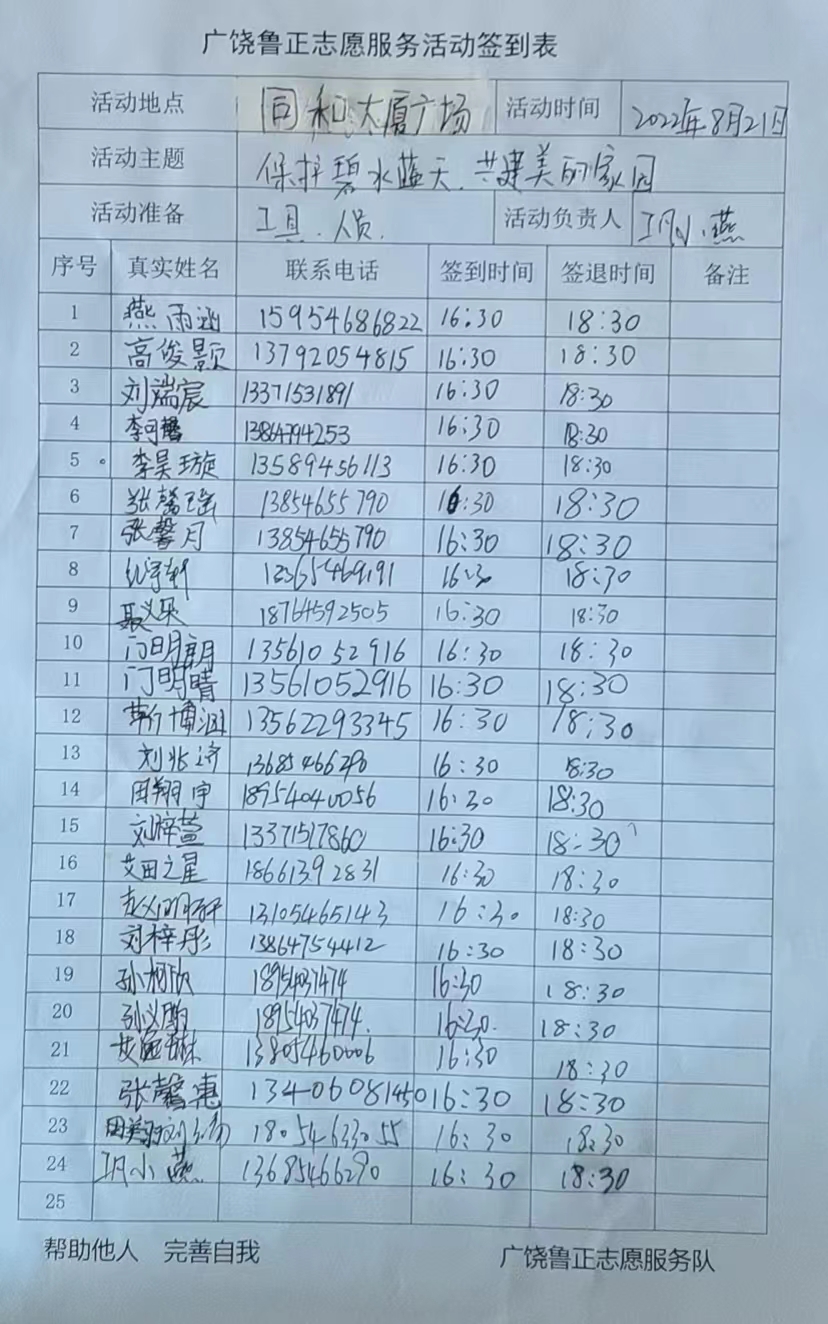 广饶鲁正志愿服务活动签到表
活动地点 同和大厦广场 活动时间 2022年8月21日
活动主题 保护碧水蓝天.共建美丽家园
活动准备 工具.人员. 活动负责人 巩小燕
序号 真实姓名 联系电话 签到时间 签退时间 备注
1 燕雨涵 15954686822 16:30 18:30
2 高俊颢 13792054815 16:30 18:30
3 刘端宸 13371531891 16:30 18:30
4 李可馨 13864794253 16:30 18:30
5 李昊璇 13589456113 16:30 18:30
6 张馨瑶 13854655790 16:30 18:30
7 张馨月 13854655790 16:30 18:30
8 纪宇轩 16:30 18:30
9 聂义果 18764592505 16:30 18:30
10 门明朗 13561052916 16:30 18:30
11 门明晴 13561052916 16:30 18:30
12 博涵 13562293345 16:30 18:30
13 刘兆济 13685466290 16:30 18:30
14 田翔宇 18954040056 16:30 18:30
15 刘梓萱 13371517860 16:30 18:30
16 艾田之星 18661392831 16:30 18:30
17 赵 13105465143 16:30 18:30
18 刘梓彤 13864754412 16:30 18:30
19 孙柯欣 18954037474 16:30 18:30
20 孙义朋 18954037474. 16:30. 18:30
21 13805460006 16:30 18:30
22 张馨惠 13406081450 16:30 18:30
23 18054633055 16:30 18:30
24 巩小燕 13685466290 16:30 18:30
25
帮助他人 完善自我 广饶鲁正志愿服务队